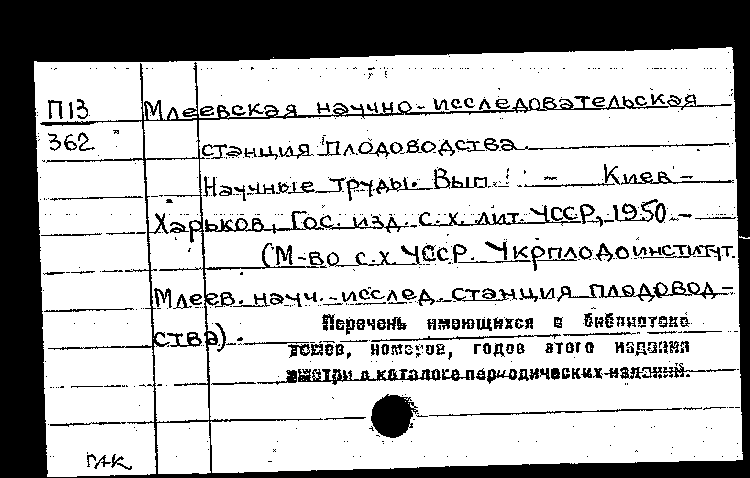 П13
362
Млеевская научно-исследовательская
станция плодоводства.
Научные труды. Вып. – Киев –
Харьков, Гос. изд. с.х. лит. УССР, 1950. –
(М-во с.х. УССР. Укрплодоинститут.
Млеев. науч.-исслед. станция плодовод-
ства).
Перечень имеющихся в библиотеке
томов, номеров, годов этого издания
смотри в каталоге периодических изданий.